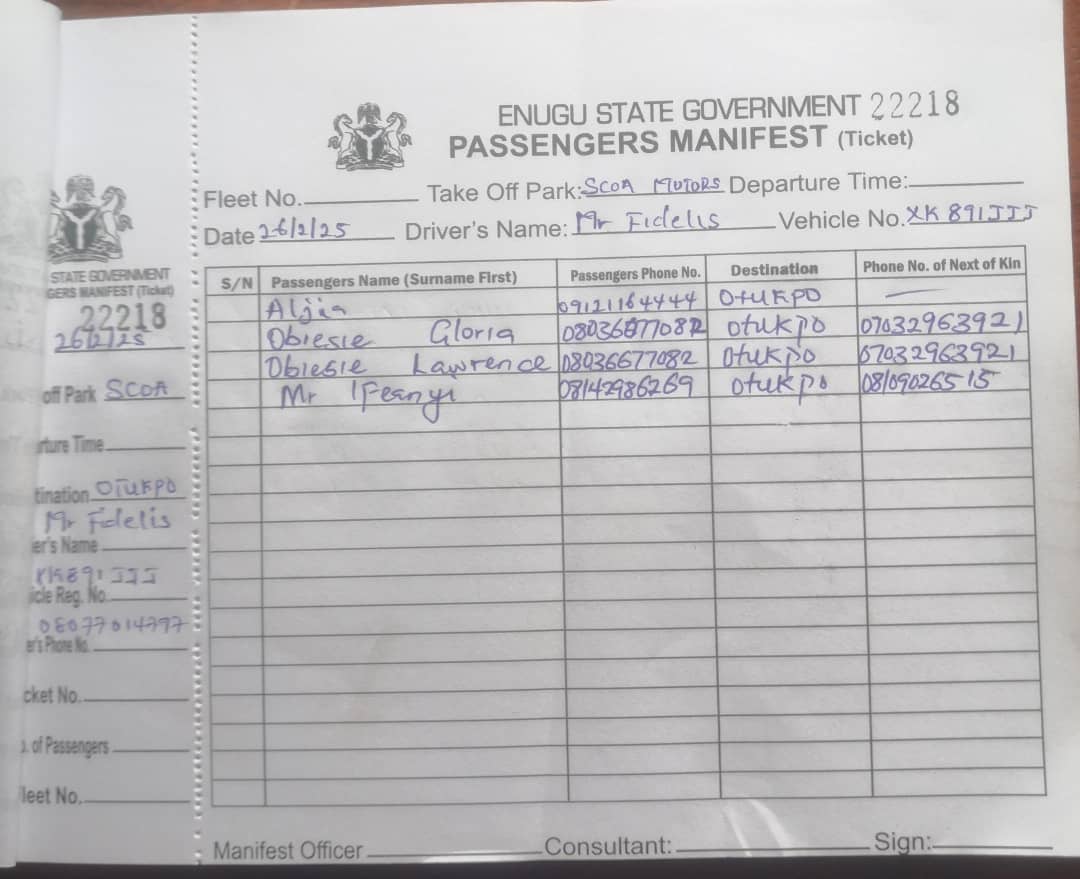 STATE GOVERNMENT
GERS MANIFEST (Ticket)
22218
26/2/25
off Park SCOA
rture Time
tination OTUKPO
Mr Fidelis
er's Name
XK891JJJ
icle Reg. No
er's Phone No.
cket No.
. of Passengers
leet No.
ENUGU STATE GOVERNMENT 22218
PASSENGERS MANIFEST (Ticket)
Fleet No. Take Off Park: SCOA MOTORS Departure Time:
Date 26/2/25 Driver's Name: Mr Fidelis Vehicle No. XK 891JJJ
S/N Passengers Name (Surname First) Passengers Phone No. Destination Phone No. of Next of Kin
09121164444 OtUKPO
Obiesie Gloria 08036677082 otukpo 07032963921
Obiesie Lawrence 08036677082 Otukpo 07032963921
Mr IFeanyi 08142986269 otukpo 08109026515
Manifest Officer Consultant: Sign: